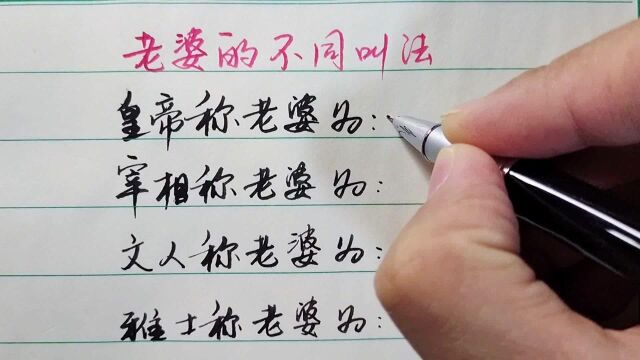 老婆的不同叫法
皇帝称老婆为:
宰相称老婆为:
文人称老婆为:
雅士称老婆为: